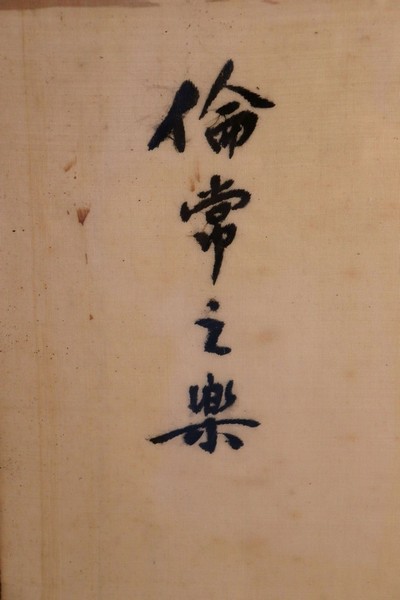 倫常之樂